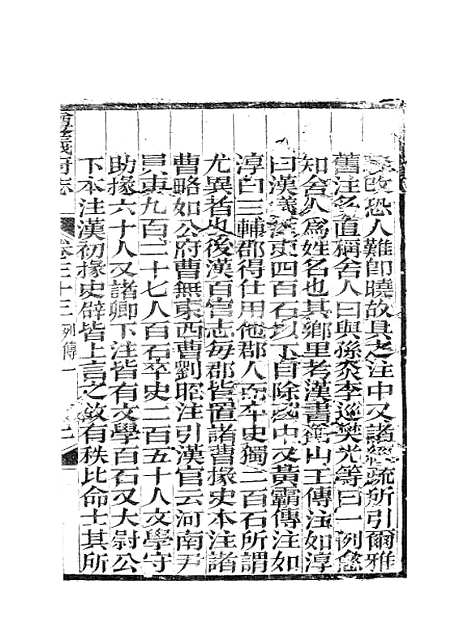 改恐人難卽曉故具之注中又諸經疏所引爾雅
舊注多直稱舍人曰與孫炎李巡樊光等曰一例
知舍人爲姓名也其鄉里考漢書衡山王傳注如淳
曰漢儀吏四百石以下自除國中又黃霸傳注如
淳曰三輔郡得仕用他郡人卒史獨二百石所謂
尤異者也後漢百官志每郡皆置諸曹掾史本注諸
曹略如公府曹無東西曹劉昭注引漢官云河南尹
員吏九百二十七人百石卒史二百五十人文學守
助掾六十人又諸卿下注皆有文學百石又大尉公
下本注漢初掾史辟皆上言之故有秩比命士其所
遵義府志 卷三十三 列傳一 二